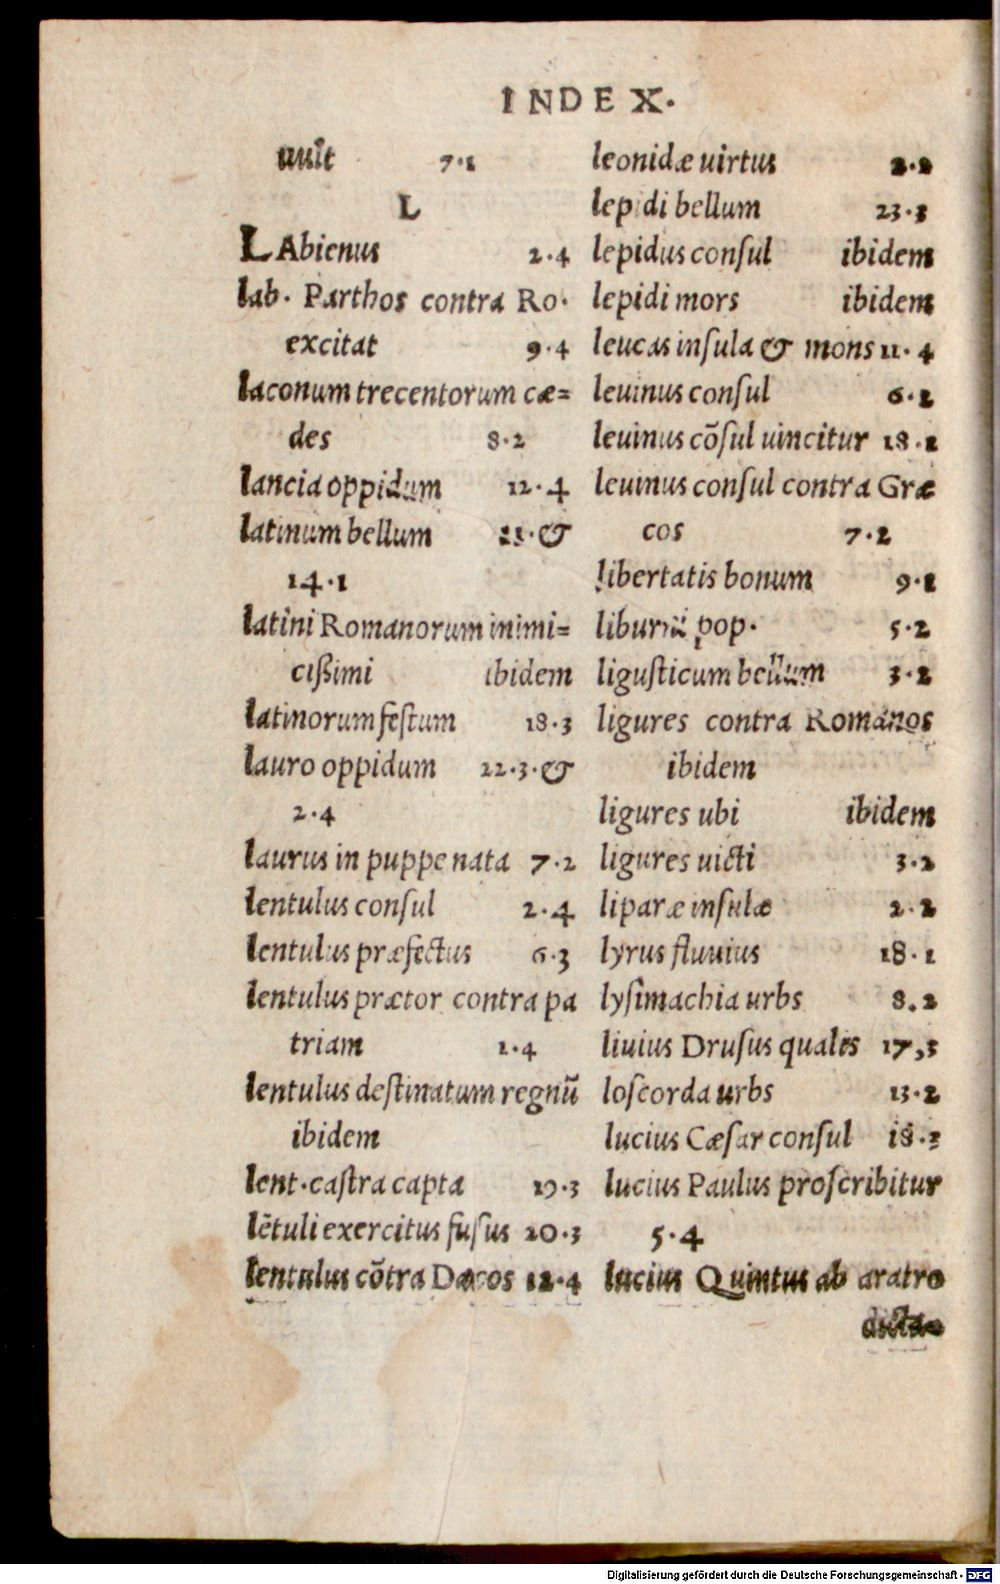 INDEX.
uult 7.1
L
LAbienus 2.4
lab. Parthos contra Ro.
excitat 9.4
laconum trecentorum cæ=
des 8.2
lancia oppidum 12.4
latinum bellum &
14.1
latini Romanorum inimi=
cißimi ibidem
latinorum feſtum 18.3
lauro oppidum 22.3.&
2.4
laurus in puppe nata 7.2
lentulus conſul 2.4
lentulus præfectus 6.3
lentulus prætor contra pa
triam 1.4
lentulus deſtinatum regnū
ibidem
lent.caſtra capta 19.3
lētuli exercitus fuſus 20.3
lentulus cōtra Dacos 12.4
leonidæ uirtus 2.2
lepidi bellum 23.3
lepidus conſul ibidem
lepidi mors ibidem
leucas inſula & mons 11.4
leuinus conſul 6.2
leuinus cōſul uincitur 18.1
leuinus conſul contra Græ
cos 7.2
libertatis bonum 9.2
liburnii pop. 5.2
liguſticum bellum 3.2
ligures contra Romanos
ibidem
ligures ubi ibidem
ligures uicti 3.2
liparæ inſulæ 2.2
lyrus fluuius 18.1
lyſimachia urbs 8.2
liuius Druſus qualis 17,3
loſcorda urbs 13.2
lucius Cæſar conſul 18.3
lucius Paulus proſcribitur
5.4
lucius Quintus ab aratro
dicta=
Digitalisierung gefördert durch die Deutsche Forschungsgemeinschaft - DFG